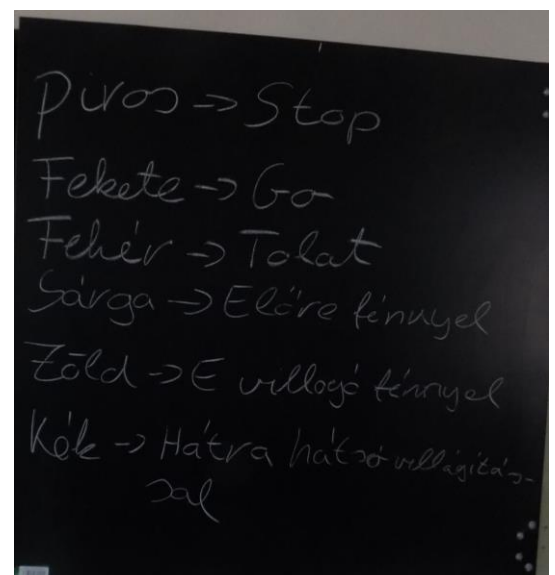 Piros -> Stop
Fekete -> Go
Fehér -> Tolat
Sárga -> Előre fénnyel
Zöld -> E villogó fénnyel
Kék -> Hátra hátsó villágítás-
sal